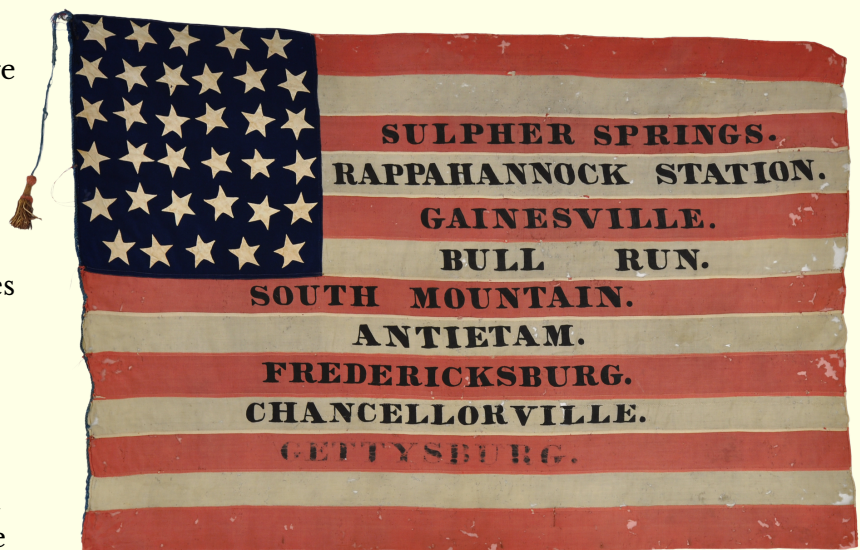 SULPHER SPRINGS.
RAPPAHANNOCK STATION.
GAINESVILLE.
BULL RUN.
SOUTH MOUNTAIN.
ANTIETAM.
FREDERICKSBURG.
CHANCELLORVILLE.
GETTYSBURG.